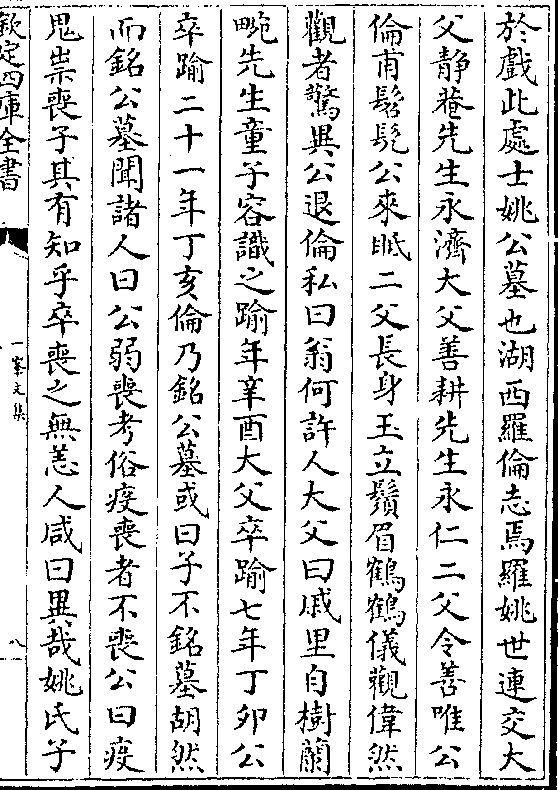 於戲此處士姚公墓也湖西羅倫志焉羅姚世連交大
父静菴先生永濟大父善耕先生永仁二父令善唯公
倫甫髫髧公來眂二父長身玉立鬚眉鶴鶴儀觀偉然
觀者驚異公退倫私曰翁何許人大父曰戚里自樹蘭
畹先生童子容識之踰年辛酉大父卒踰七年丁卯公
卒踰二十一年丁亥倫乃銘公墓或曰子不銘墓胡然
而銘公墓聞諸人曰公弱喪考俗疫喪者不喪公曰疫
鬼祟喪子其有知乎卒喪之無恙人咸曰異哉姚氏子
欽定四庫全書
一峯文集
八